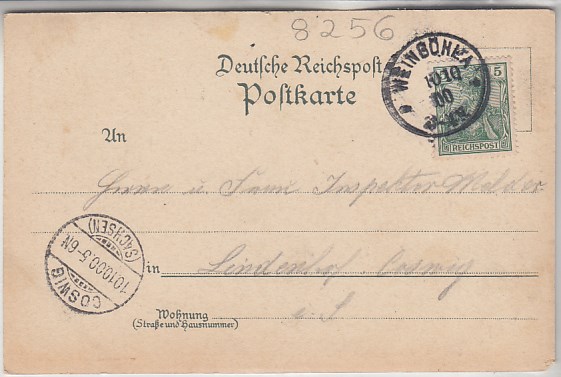 8256
Deutsche Reichspost
Postkarte
WEINBÖHLA
10 10
00
5
REICHSPOST
An
Herrn u. Frau Inspektor
COSWIG
(SACHSEN)
10.10.00.5-6N
in
Lindenhof Coswig
i. S
Wohnung
(Straße und Hausnummer)